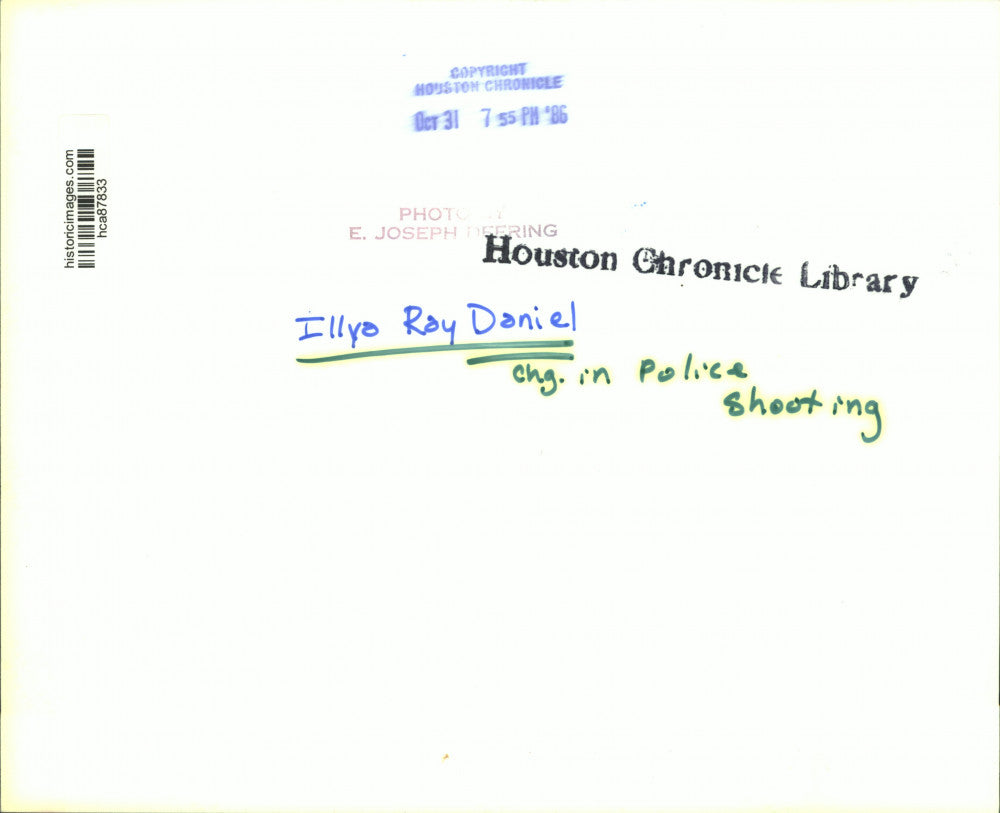 COPYRIGHT
HOUSTON CHRONICLE
OCT 31 7 55 PM '86
historicimages.com
hca87833
PHOTO BY
E. JOSEPH DEERING
Houston Chronicle Library
Illya Ray Daniel
chg. in Police
Shooting